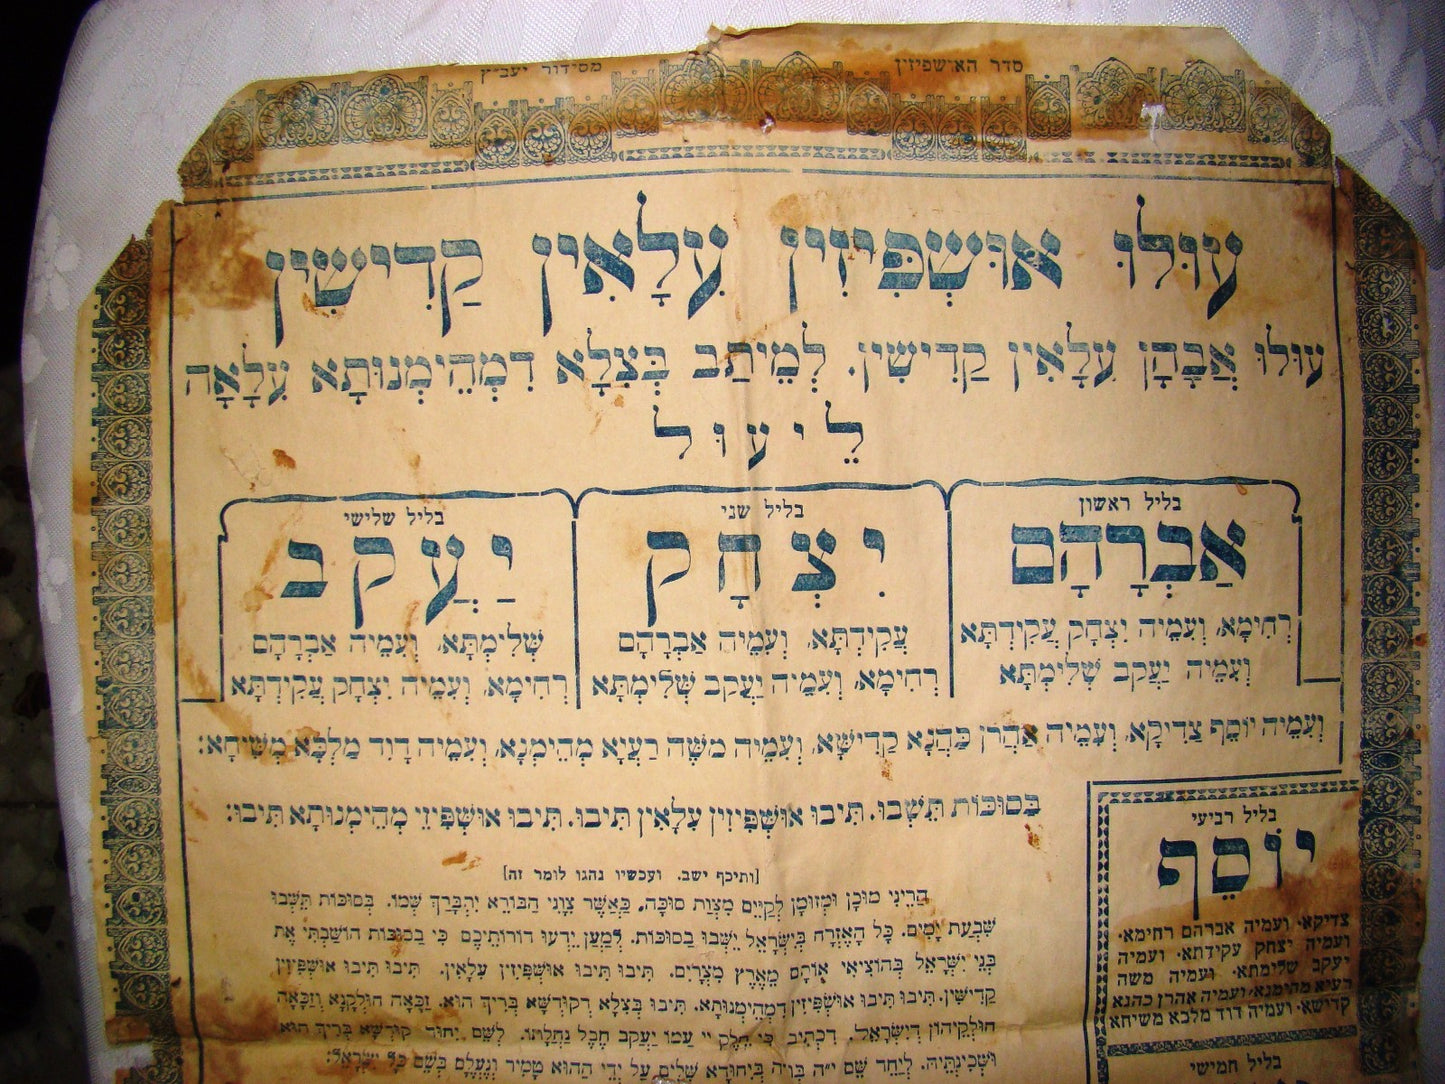 סדר האושפיזין
מסידור יעב״ץ
עוּלוּ אוּשְׁפִּיזִין עִלָּאִין קַדִישִׁין
עוּלוּ אֲבָהָן עִלָּאִין קַדִישִׁין. לְמֵיתַב בְּצִלָּא דִמְהֵימְנוּתָא עִלָּאָה
לֵיעוּל
בליל ראשון
אַבְרָהָם
רְחִימָא, וְעִמֵיה יִצְחָק עֲקֵידְתָּא
וְעִמֵיה יַעֲקֹב שְׁלִימְתָּא
בליל שני
יִצְחָק
עֲקֵידְתָּא, וְעִמֵיה אַבְרָהָם
רְחִימָא, וְעִמֵיה יַעֲקֹב שְׁלִימְתָּא
בליל שלישי
יַעֲקֹב
שְׁלִימְתָּא, וְעִמֵיה אַבְרָהָם
רְחִימָא, וְעִמֵיה יִצְחָק עֲקֵידְתָּא
וְעִמֵיה יוֹסֵף צַדִיקָא, וְעִמֵיה אַהֲרֹן כַּהֲנָא קַדִישָׁא, וְעִמֵיה משֶׁה רַעְיָא מְהֵימְנָא, וְעִמֵיה דָוִד מַלְכָּא מְשִׁיחָא:
בַּסוּכּוֹת תֵּשְׁבוּ. תִּיבוּ אוּשְׁפִּיזִין עִלָּאִין תִּיבוּ. תִּיבוּ אוּשְׁפִּיזֵי מְהֵימְנוּתָא תִּיבוּ:
[ותיכף ישב. ועכשיו נהגו לומר זה]
הֲרֵינִי מוּכָן וּמְזוּמָן לְקַיֵּים מִצְוַת סוּכָּה. כַּאֲשֶׁר צִוַּנִי הַבּוֹרֵא יִתְבָּרַךְ שְׁמוֹ. בַּסוּכּוֹת תֵּשְׁבוּ
שִׁבְעַת יָמִים. כָּל הָאֶזְרָח בְּיִשְׂרָאֵל יֵשְׁבוּ בַסוּכּוֹת. לְמַעַן יֵדְעוּ דוֹרוֹתֵיכֶם כִּי בַסוּכּוֹת הוֹשַׁבְתִּי אֶת
בְּנֵי יִשְׂרָאֵל בְּהוֹצִיאִי אוֹתָם מֵאֶרֶץ מִצְרָיִם. תִּיבוּ תִּיבוּ אוּשְׁפִּיזִין עִלָּאִין. תִּיבוּ תִּיבוּ אוּשְׁפִּיזִין
קַדִישִׁין. תִּיבוּ תִּיבוּ אוּשְׁפִּיזִין דִמְהֵימְנוּתָא. תִּיבוּ בְּצִלָּא דְקוּדְשָׁא בְּרִיךְ הוּא. זַכָּאָה חוּלָקָנָא וְזַכָּאָה
חוּלָקֵיהוֹן דְיִשְׂרָאֵל. דִכְתִיב כִּי חֵלֶק יי עַמּוֹ יַעֲקֹב חֶבֶל נַחֲלָתוֹ. לְשֵׁם יִחוּד קוּדְשָׁא בְּרִיךְ הוּא
וּשְׁכִינְתֵּיהּ. לְיַחֵד שֵׁם י״ה בְּו״ה בְּיִחוּדָא שְׁלִים עַל יְדֵי הַהוּא טָמִיר וְנֶעְלָם בְּשֵׁם כָּל יִשְׂרָאֵל:
בליל רביעי
יוֹסֵף
צדיקא. ועמיה אברהם רחימא.
ועמיה יצחק עקידתא. ועמיה
יעקב שלימתא. ועמיה משה
רעיא מהימנא. ועמיה אהרן כהנא
קדישא. ועמיה דוד מלכא משיחא
בליל חמישי